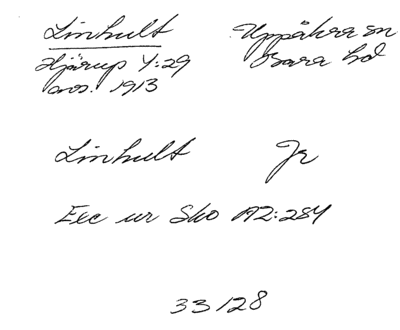 Linhult
Hjärup 4:29
avs. 1913
Uppåkra sn
Bara hd
Linhult Jr
Exc ur Sko A2:284
33/28